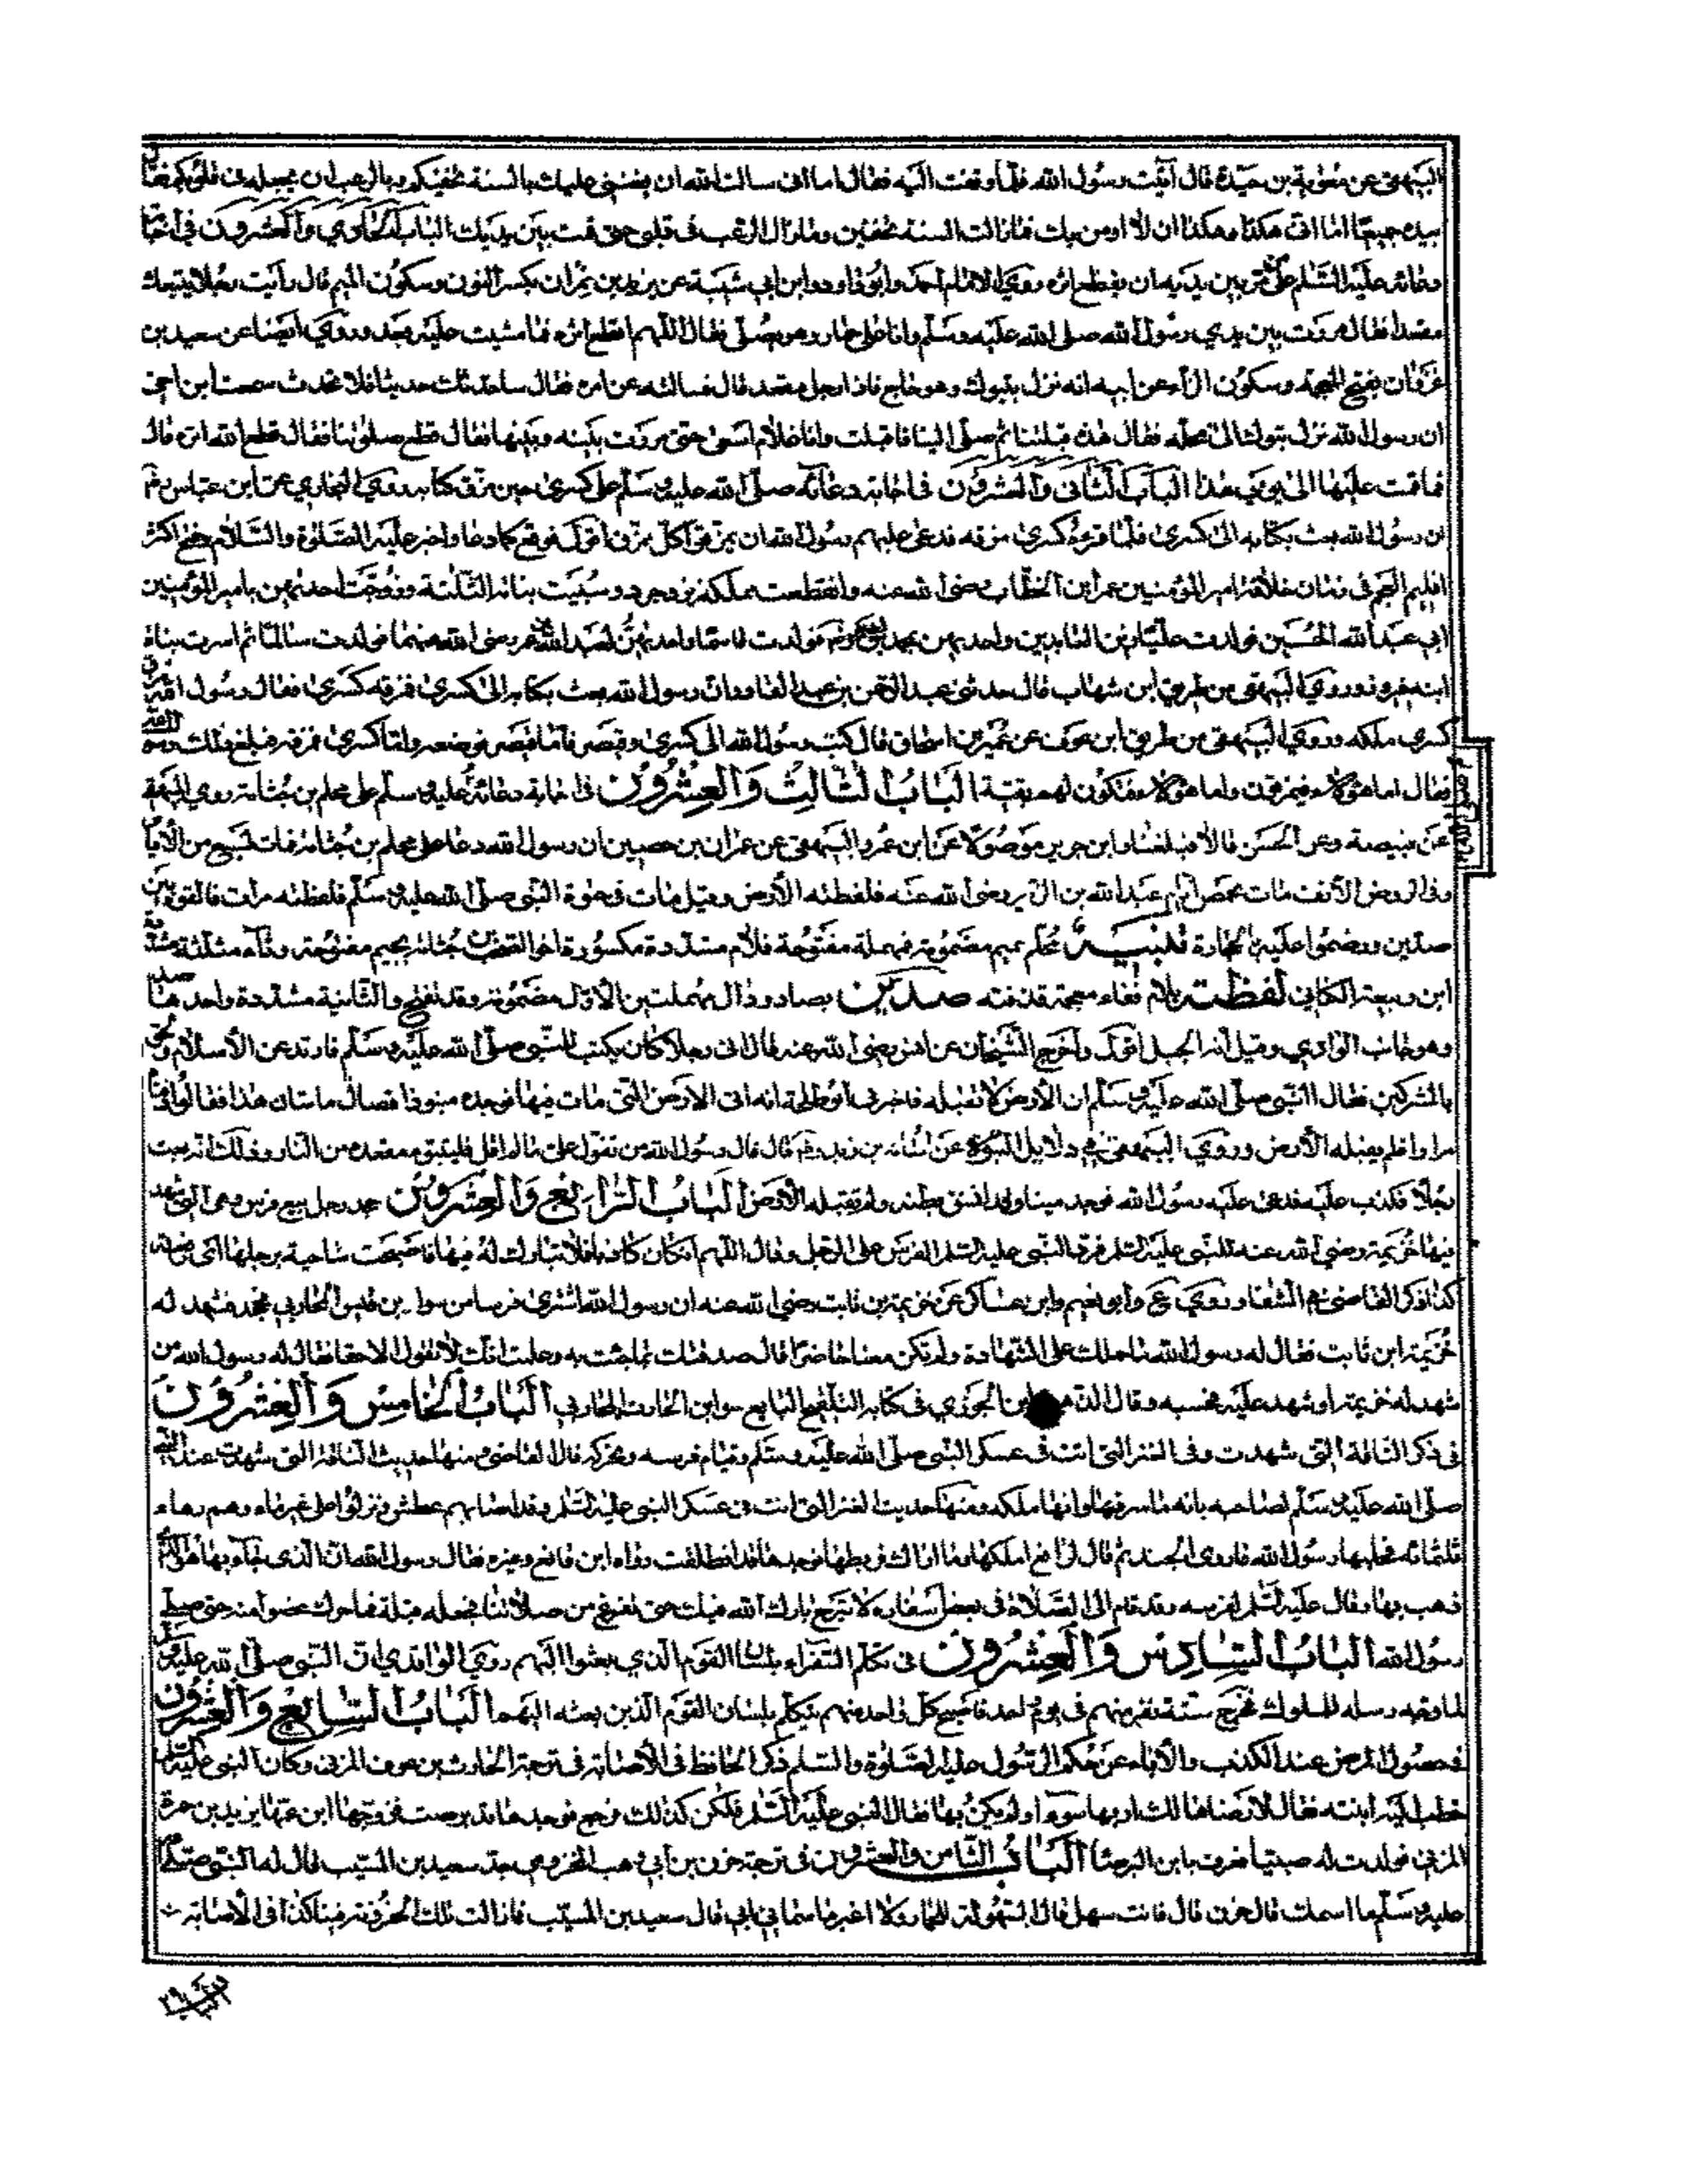 البيهقى عن معوية بن حيدة قال أتيت رسول الله فلما وقفت اليه فقال اما انى سالت الله ان يعيننى عليك بالسنة تحفيكم وبالرعب ان يجعله فى قلوبكم فقال
بيده جميعا اما انى هكذا وهكذا ان لا اومن بك فما زالت السنة تحفينى وما زال الرعب فى قلبى حتى قمت بين يديك الباب الحادي والعشرون فى اجابة
دعائه عليه السلم على من مر بين يديه ان يقطع اثره روي الامام احمد وابو داود وابن ابي شيبة عن يزيد بن نمران بكسر النون وسكون الميم قال رأيت رجلا بتبوك
مقعدا فقال مررت بين يدي رسول الله صلى الله عليه وسلم وانا على حمار وهو يصلى فقال اللهم اقطع اثره فما مشيت عليه بعد وروي ايضا عن سعيد بن
غزوان بفتح المعجمة وسكون الزاء عن ابيه انه نزل بتبوك وهو حاج فاذا رجل مقعد قال فسالته عن امره فقال ساحدثك حديثا فلا تحدث سمعت انى حى
ان رسول الله نزل بتبوك الى نخلة فقال هذه قبلتنا ثم صلى اليها فاقبلت وانا غلام اسعى حتى مررت بينه وبينها فقال قطع صلوتنا فقال قطع الله اثره قال
فما قمت عليها الى يومي هذا الباب الثانى والعشرون فى اجابة دعائه صلى الله عليه وسلم على كسرى حين مزق كتابه روي البخاري عن ابن عباس رضى
ان رسول الله بعث بكتابه الى كسرى فلما قرءه كسرى مزقه فدعى عليهم رسول الله ان يمزقوا كل ممزق اقول فوقع كما دعا واخبر عليه الصلوة والسلام ففتح اكثر
اقليم العجم فى زمان خلافة امير المؤمنين عمر ابن الخطاب رضى الله عنه وانقطعت مملكة يزدجرد وسبيت بناته الثلثة وزوجت احديهن بامير المؤمنين
ابي عبد الله الحسين فولدت عليا زين العابدين واحديهن بمحمد فولدت قاسما واحديهن لعبد الله بن عمر رضى الله عنهما فولدت سالما ثم اسرت بنات
ابنه وروي البيهقى من طريق ابن شهاب قال حدثنى عبد الرحمن بن عبد القاري ان رسول الله بعث بكتابه الى كسرى فمزقه كسرى فقال رسول الله مزق
كسرى ملكه وروي البيهقى من طريق ابن عون عن عمير بن اسحاق قال كتب رسول الله الى كسرى وقيصر فاما قيصر فوضعه واما كسرى فمزقه فبلغ ذلك رسول الله
فقال اما هؤلاء فيمزقون واما هؤلاء فستكون لهم بقية الباب الثالث والعشرون فى اجابة دعائه عليه وسلم على محلم بن جثامة روي البيهقى
عن قبيصة وعن الحسن قالا فبلغنا وابن جرير موصولا عن ابن عمر والبيهقى عن عمران بن حصين ان رسول الله دعا على محلم بن جثامة فمات لسبع من الايام
وفى الروض الانف مات بحمص ايام عبد الله بن الزبير رضى الله عنه فلفظته الارض وقيل مات فى حيوة النبى صلى الله عليه وسلم فلفظته مرات فالقوه بين
صدين ورضموا عليه الحجارة تنبيه محلم بميم مضمومة فمهملة مفتوحة فلام مشددة مكسورة جثامة بجيم مفتوحة وثاء مثلثة مشددة
ابن ربيعة الكنانى لفظت بلام ففاء معجمة قذفته صدين بصاد ودال مهملتين الاول مضمومة وقد تفتح والثانية مشددة واحدهما صد
وهو جانب الوادي وقيل انه الجبل اقول واخرج الشيخان عن انس رضى الله عنه قال ان رجلا كان يكتب للنبى صلى الله عليه وسلم فارتد عن الاسلام ولحق
بالمشركين فقال النبى صلى الله عليه وسلم ان الارض لا تقبله فاخبرنى ابو طلحة انه اتى الارض التى مات فيها فوجده منبوذا فقال ما شان هذا فقالوا دفناه
مرارا فلم يقبله الارض وروي البيهقى فى دلائل النبوة عن اسامة بن زيد رضى قال قال رسول الله من تقول على ما لم اقل فليتبوء مقعده من النار وذلك انه بعث
رجلا فكذب عليه فدعى عليه رسول الله فوجد ميتا وقد انشق بطنه ولم تقبله الارض الباب الرابع والعشرون جحد رجل بيع فرس وهى التى شهد
فيها خزيمة رضى الله عنه للنبى عليه السلم فرد النبى عليه السلم الفرس على الرجل وقال اللهم ان كان كاذبا فلا تبارك له فيها فاصبحت شاصية برجلها
كذا ذكر القاضى فى الشفا وروي ع وابو نعيم وابن عساكر عن خزيمة بن ثابت رضى الله عنه ان رسول الله اشترى فرسا من سواء بن قيس المحاربي فجحد فشهد له
خزيمة ابن ثابت فقال له رسول الله ما حملك على الشهادة ولم تكن معنا حاضرا قال صدقتك بما جئت به وعلمت انك لا تقول الا حقا فقال له رسول الله من
شهد له خزيمة او شهد عليه فحسبه وقال ابن الجوزي فى كتابه التلقيح البايع سوا ابن الحارث المحاربي الباب الخامس والعشرون
فى ذكر الناقة التى شهدت وفى العنز التى اتت فى عسكر النبى صلى الله عليه وسلم وقيام فرسه وتحركه قال القاضى ومنها حديث الناقة التى شهدت عند النبى
صلى الله عليه وسلم لصاحبه بانه ما سرقها وانها ملكه ومنها حديث العنز التى اتت فى عسكر النبى عليه السلم وقد اصابهم عطش ونزلوا على غير ماء وهم زهاء
ثلثمائة فحلبها رسول الله فاروى الجند ثم قال لرافع املكها وما اراك فربطها فوجدها قد انطلقت رواه ابن قانع وغيره فقال رسول الله ان الذى جاء بها هو الذى
ذهب بها وقال عليه السلم لفرسه وقد قام الى الصلاة فى بعض اسفاره لا تبرح بارك الله فيك حتى نفرغ من صلاتنا فجعله قبلة فما حرك عضوا منه حتى صلى
رسول الله الباب السادس والعشرون فى تكلم السفراء بلسان القوم الذي بعثوا اليهم روي الواقدي ان النبى صلى الله عليه وسلم
لما وجه رسله للملوك فخرج ستة نفر منهم فى يوم واحد فاصبح كل واحد منهم يتكلم بلسان القوم الذين بعثه اليهم الباب السابع والعشرون
فى حصول المرض عند الكذب والاباء عن حكم الرسول عليه الصلوة والسلم ذكر الحافظ فى الاصابة فى ترجمة الحارث بن عوف المزنى وكان النبى عليه السلم
خطب اليه ابنته فقال لا ارضاها لك ان بها سوءا ولم يكن بها فقال النبى عليه السلم فلتكن كذلك فرجع فوجدها قد برصت فزوجها ابن عمها يزيد بن حمزة
المزنى فولدت له صبيا فعرف بابن البرصاء الباب الثامن والعشرون فى ترجمة حزن بن ابي وهب المخزومي جد سعيد بن المسيب قال له النبى صلى الله
عليه وسلم ما اسمك قال حزن قال فانت سهل قال السهولة للحمار ولا اغير ما سمانى ابي قال سعيد بن المسيب فما زالت تلك الحزونة فينا كذا فى الاصابة